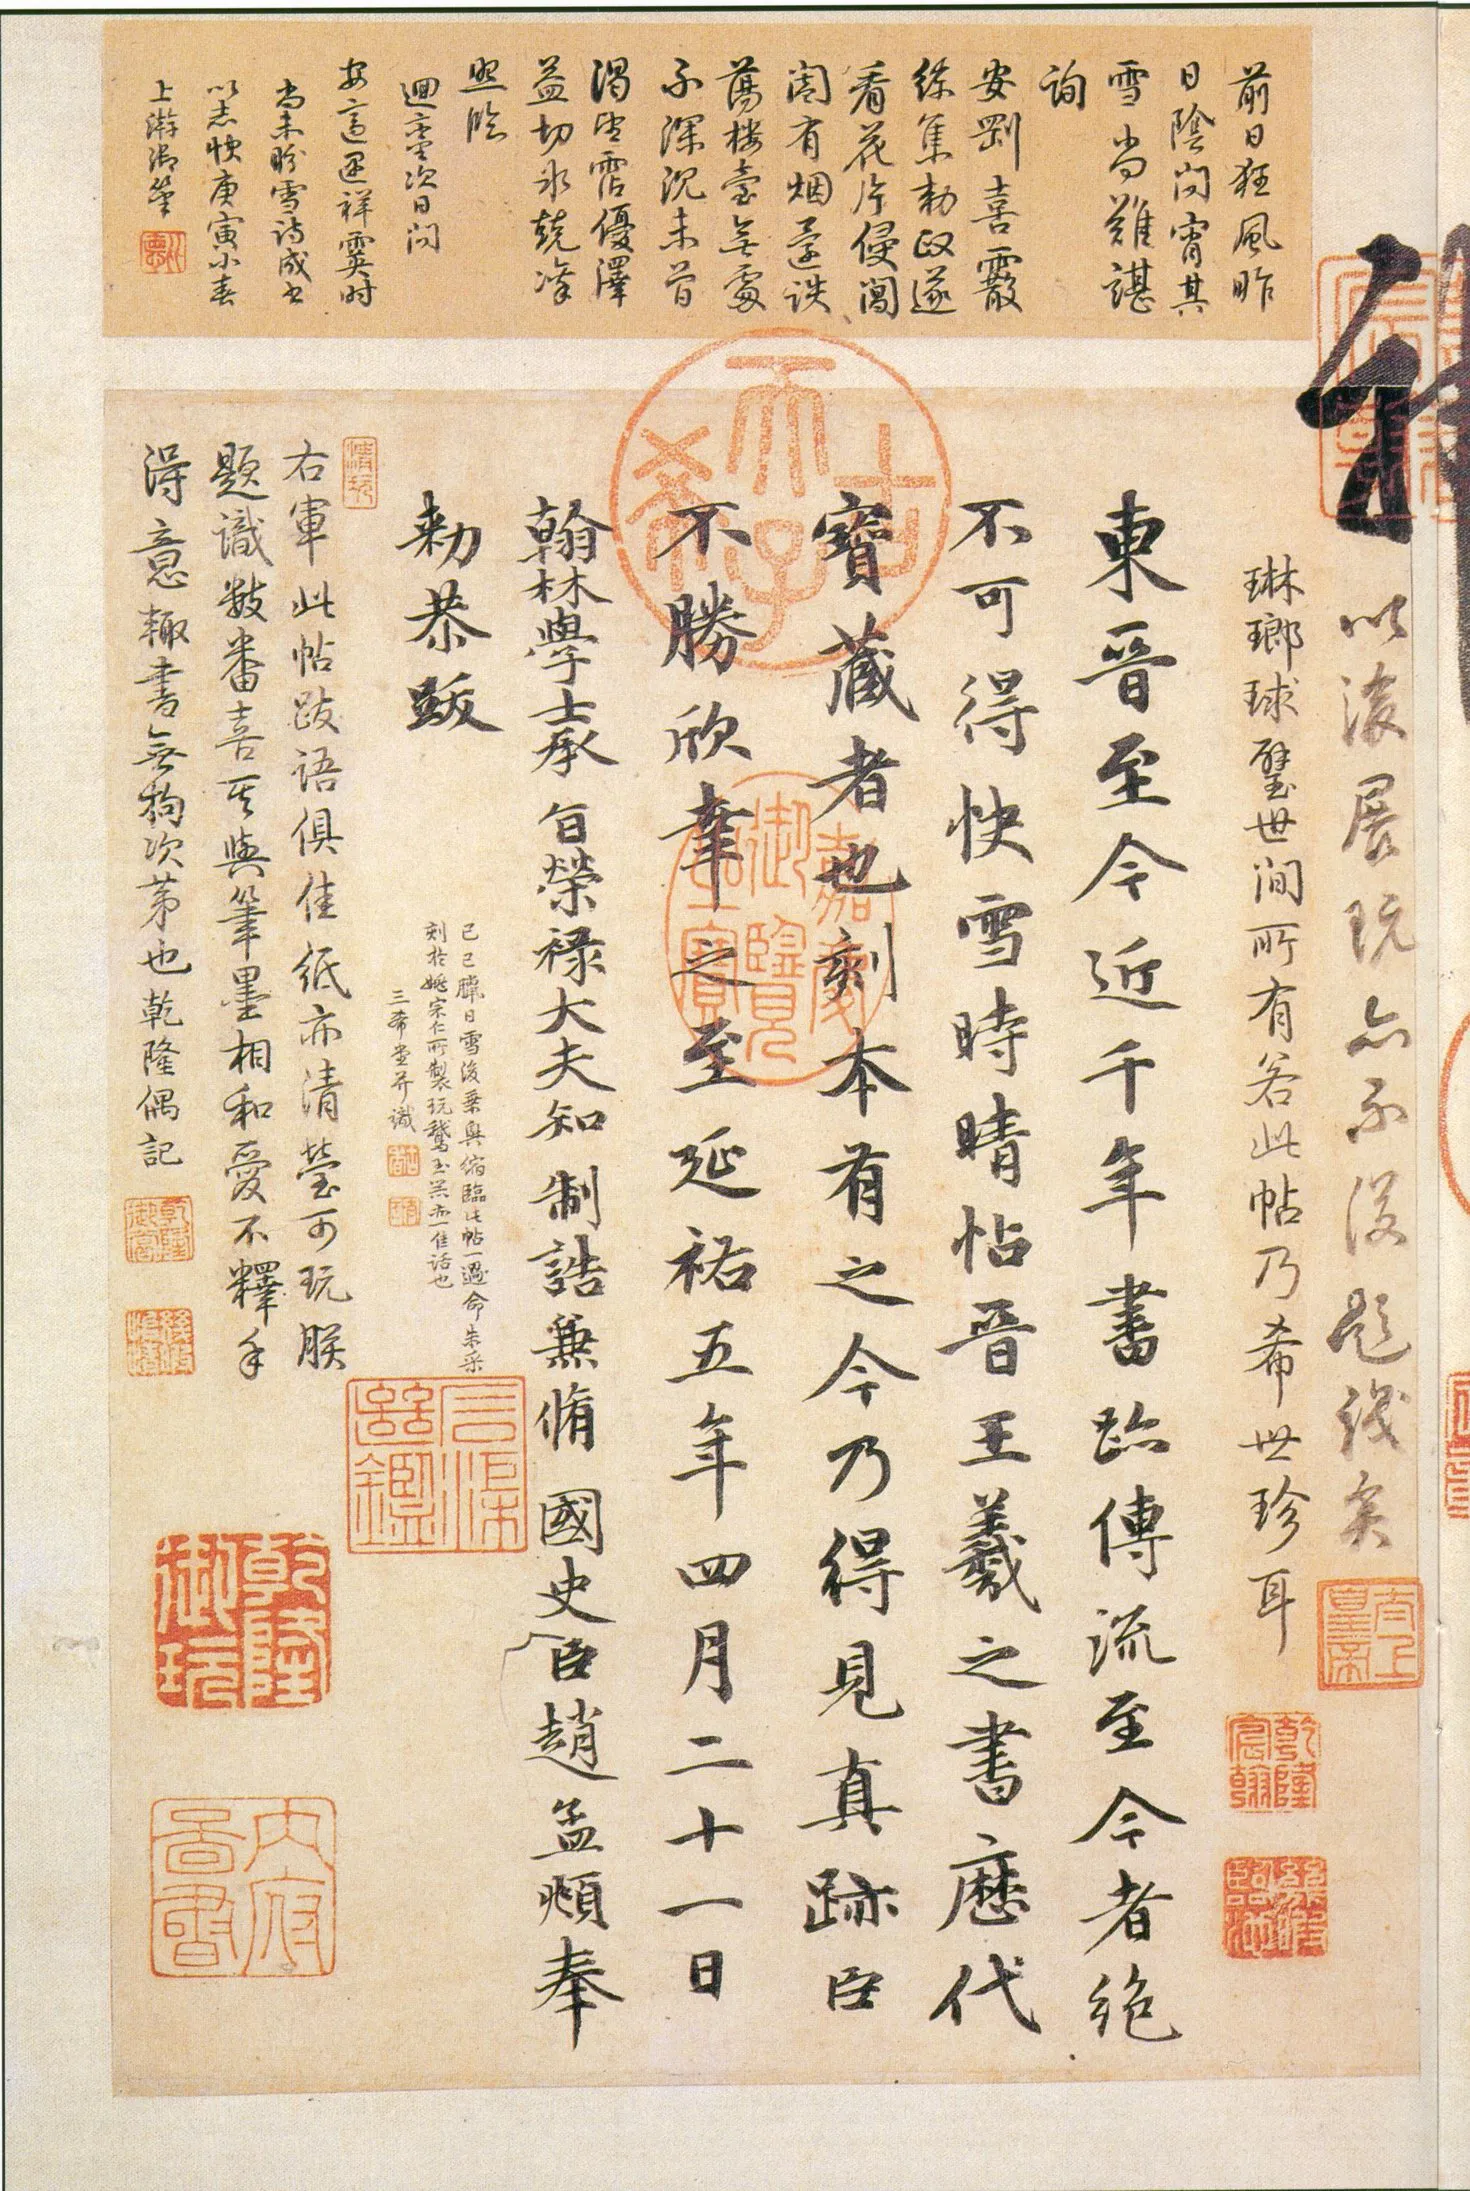 前日狂風昨
日陰閟霄其
雪尚難諶
詢
安剛喜霰
綜集勅政遂
看花片侵閶
闔有烟
蕩樓臺無處
不深沉未曾
渴望霑優澤
益切冰兢凜
照臨
迴鑾次日閟
祥霙时
尚未盼雪詩成書
以志快庚寅小春
上澣御筆
以後展玩亦不復題識矣
琳瑯球璧世間所有若此帖乃希世珍耳
東晉至今近千年書跡傳流至今者絶
不可得快雪時晴帖晉王羲之書歷代
寶藏者也刻本有之今乃得見真跡臣
不勝欣幸之至延祐五年四月二十一日
翰林學士承旨榮祿大夫知制誥兼脩國史臣趙孟頫奉
勅恭跋
己巳臘日雪後乘興縮臨此帖一過命朱采
刻於姚宗仁所製玩鵞玉羔亦一佳話也
三希堂并識
右軍此帖跋語俱佳紙亦清瑩可玩朕
題識數番喜其與筆墨相和愛不釋手
得意輒書無拘次第也乾隆偶記
太上皇帝
乾隆宸翰
天子古希
嘉慶御覽之寶
乾隆御玩
內府圖書